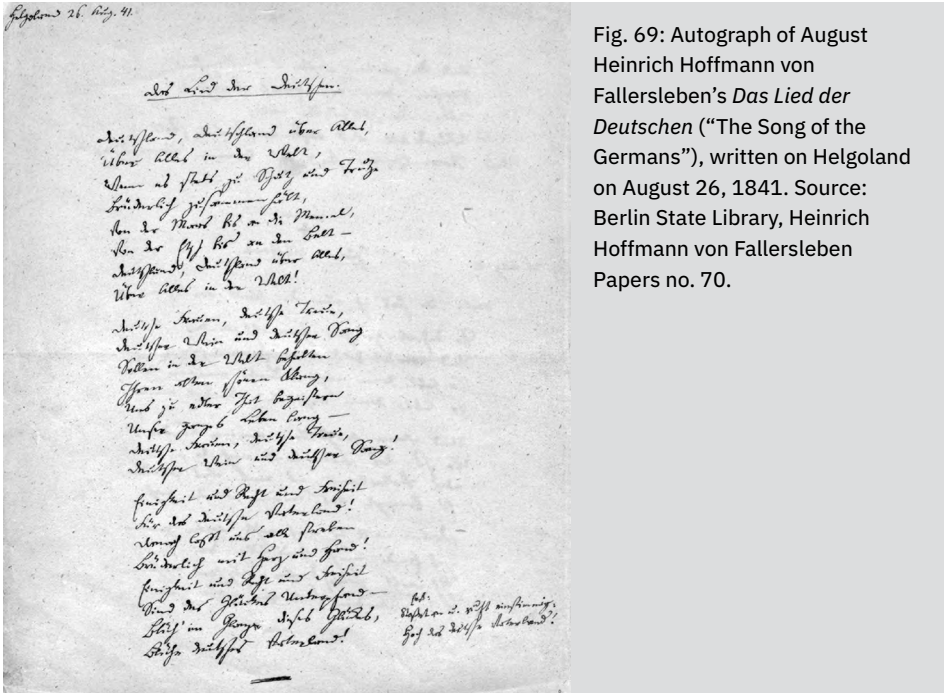 Helgoland 26. Aug. 41.
Das Lied der Deutschen.
Deutschland, Deutschland über Alles,
Über Alles in der Welt,
Wenn es stets zu Schutz und Trutze
Brüderlich zusammenhält,
Von der Maas bis an die Memel,
Von der Etsch bis an den Belt —
Deutschland, Deutschland über Alles,
Über Alles in der Welt!
Deutsche Frauen, deutsche Treue,
Deutscher Wein und deutscher Sang
Sollen in der Welt behalten
Ihren alten schönen Klang,
Uns zu edler That begeistern
Unser ganzes Leben lang —
Deutsche Frauen, deutsche Treue,
Deutscher Wein und deutscher Sang!
Einigkeit und Recht und Freiheit
Für das deutsche Vaterland!
Danach laßt uns alle streben
Brüderlich mit Herz und Hand!
Einigkeit und Recht und Freiheit
Sind des Glückes Unterpfand —
Blüh' im Glanze dieses Glückes,
Blühe deutsches Vaterland!
Stoßet an u. ruft einstimmig:
Hoch das deutsche Vaterland!
Fig. 69: Autograph of August
Heinrich Hoffmann von
Fallersleben’s Das Lied der
Deutschen (“The Song of the
Germans”), written on Helgoland
on August 26, 1841. Source:
Berlin State Library, Heinrich
Hoffmann von Fallersleben
Papers no. 70.